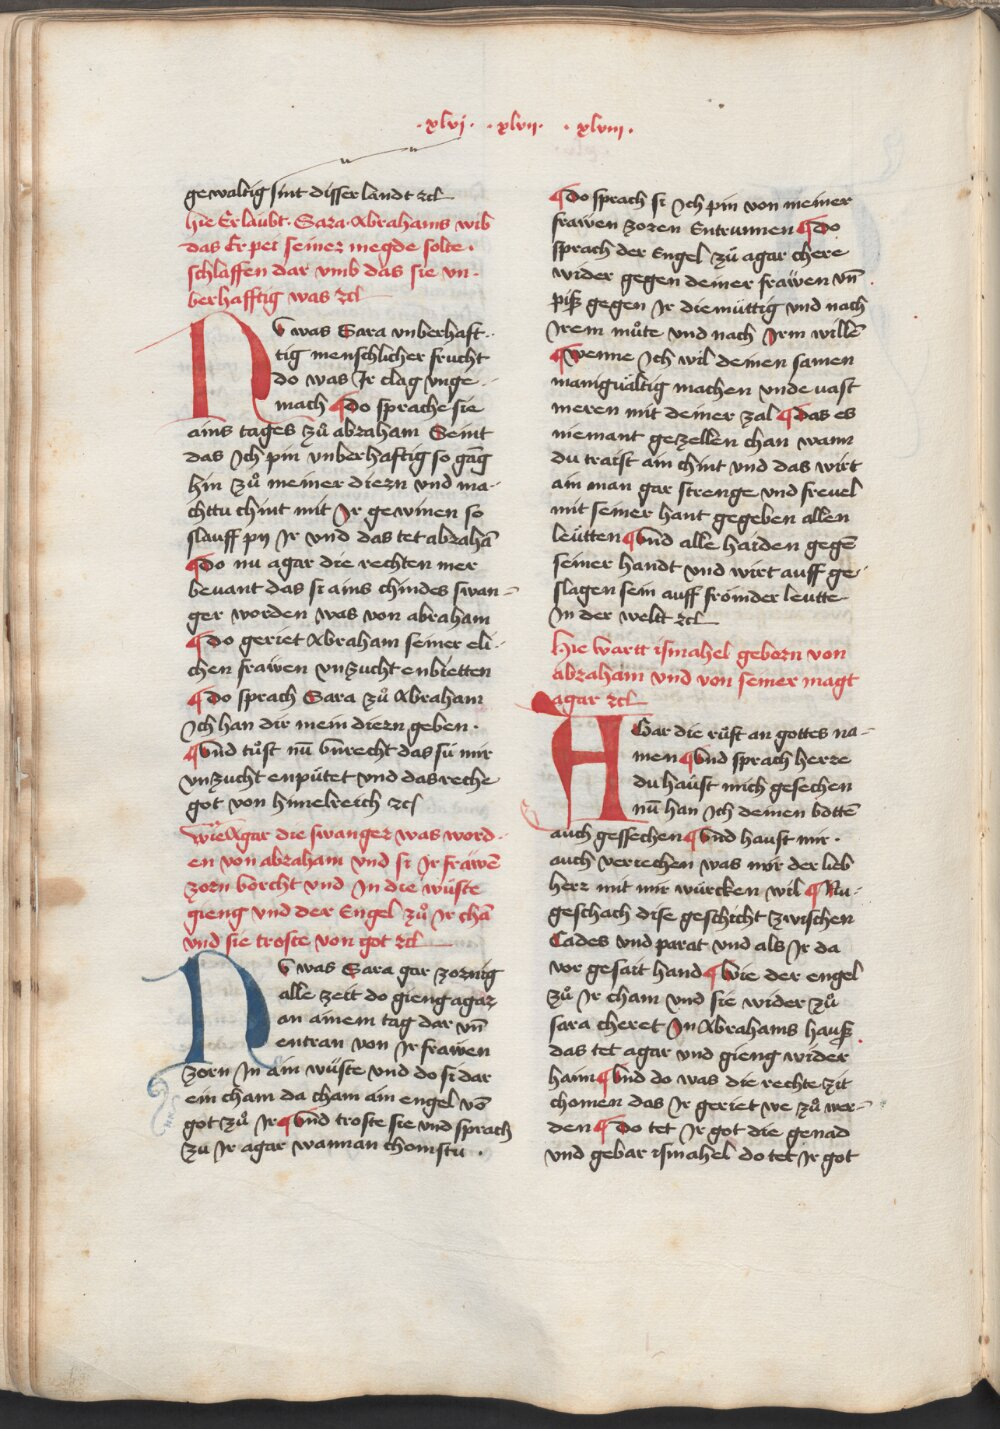 ·xlvi· ·xlvii· ·xlviii·
gewaltig sint disser landt rcl
hie Erlaubt · Sara · Abrahams wib
das Er pei seiner megde solte ·
schlaffen dar vmb das sie vn-
berhafftig was rcl
NV was Sara vnberhaft-
tig menschlicher frucht
do was Ir clag vnge-
mach ¶ do sprache sie
ains tages zuͦ abraham Seint
das Ich pin vnberhaftig so gāg
hin zuͦ meiner diern vnd ma-
chttu chint mit Ir gewinen so
slauff py Ir vnd das tet abrahā
¶ Do nu agar die rechten mer
bevant das si ains chindes swan-
ger worden was von abraham
¶ do geriet Abraham seiner eli-
chen frawen vnzucht enbietten
¶ do sprach Sara zuͦ Abraham
Ich han dir mein diern geben ·
¶ vnd tuͦst nū vnrecht das sü mir
vnzucht enpütet vnd das reche
got von himelreich rcl
wie Agar die swanger was word-
en von abraham vnd si Ir frawē
zorn vorcht vnd In die wüste
gieng vnd der Engel zuͦ Ir chā
vnd sie troste von got rcl
NV was Sara gar zornig
alle zeit do gieng agar
an ainem tag dar vn̄
entran von Ir frawen
zorn In ain wüste vnd do si dar
ein cham da cham ain engel vō
got zuͦ Ir ¶ vnd troste sie vnd sprach
zu Ir agar wannan chomstu ·
¶ Do sprach si Ich pin von meiner
frawen zoren Entrunnen ¶ Do
sprach der Engel zuͦ agar chere
wider gegen deiner frawen vn̄
piß gegen Ir diemüttig vnd nach
Irem muͦte vnd nach Irm willē
¶ Wenne Ich wil deinen samen
manigualtig machen vnde vast
meren mit deiner zal ¶ Das es
niemant gezellen chan wann
du traist ain chint vnd das wirt
ain man gar strenge vnd freuel
mit seiner hant gegeben allen
leütten ¶ vnd alle haiden gegē
seiner handt vnd wirt auff ge-
slagen sein auff frömder leutte
In der weltt rcl
Hie wartt ismahel geborn von
abraham vnd von seiner magt
agar rcl
AGar die ruͦft an gottes na-
men ¶ vnd sprach herre
du haüst mich gesechen
nū han Ich deinen bottē
auch gessechen ¶ vnd haust mir ·
auch veriechen was mir der lieb
herr mit mir würcken wil ¶ Nu-
geschach dise geschicht zwischen
Cades vnd parat vnd als Ir da
vor gesait hand ¶ wie der engel
zuͦ Ir cham vnd sie wider zuͦ
sara cheret In Abrahams hauß
das tet agar vnd gieng wider
haim ¶ vnd do was die rechte zit
chomen das Ir geriet we zuͦ wer-
den ¶ Do tet Ir got die genad
vnd gebar ismahel do tet Ir got